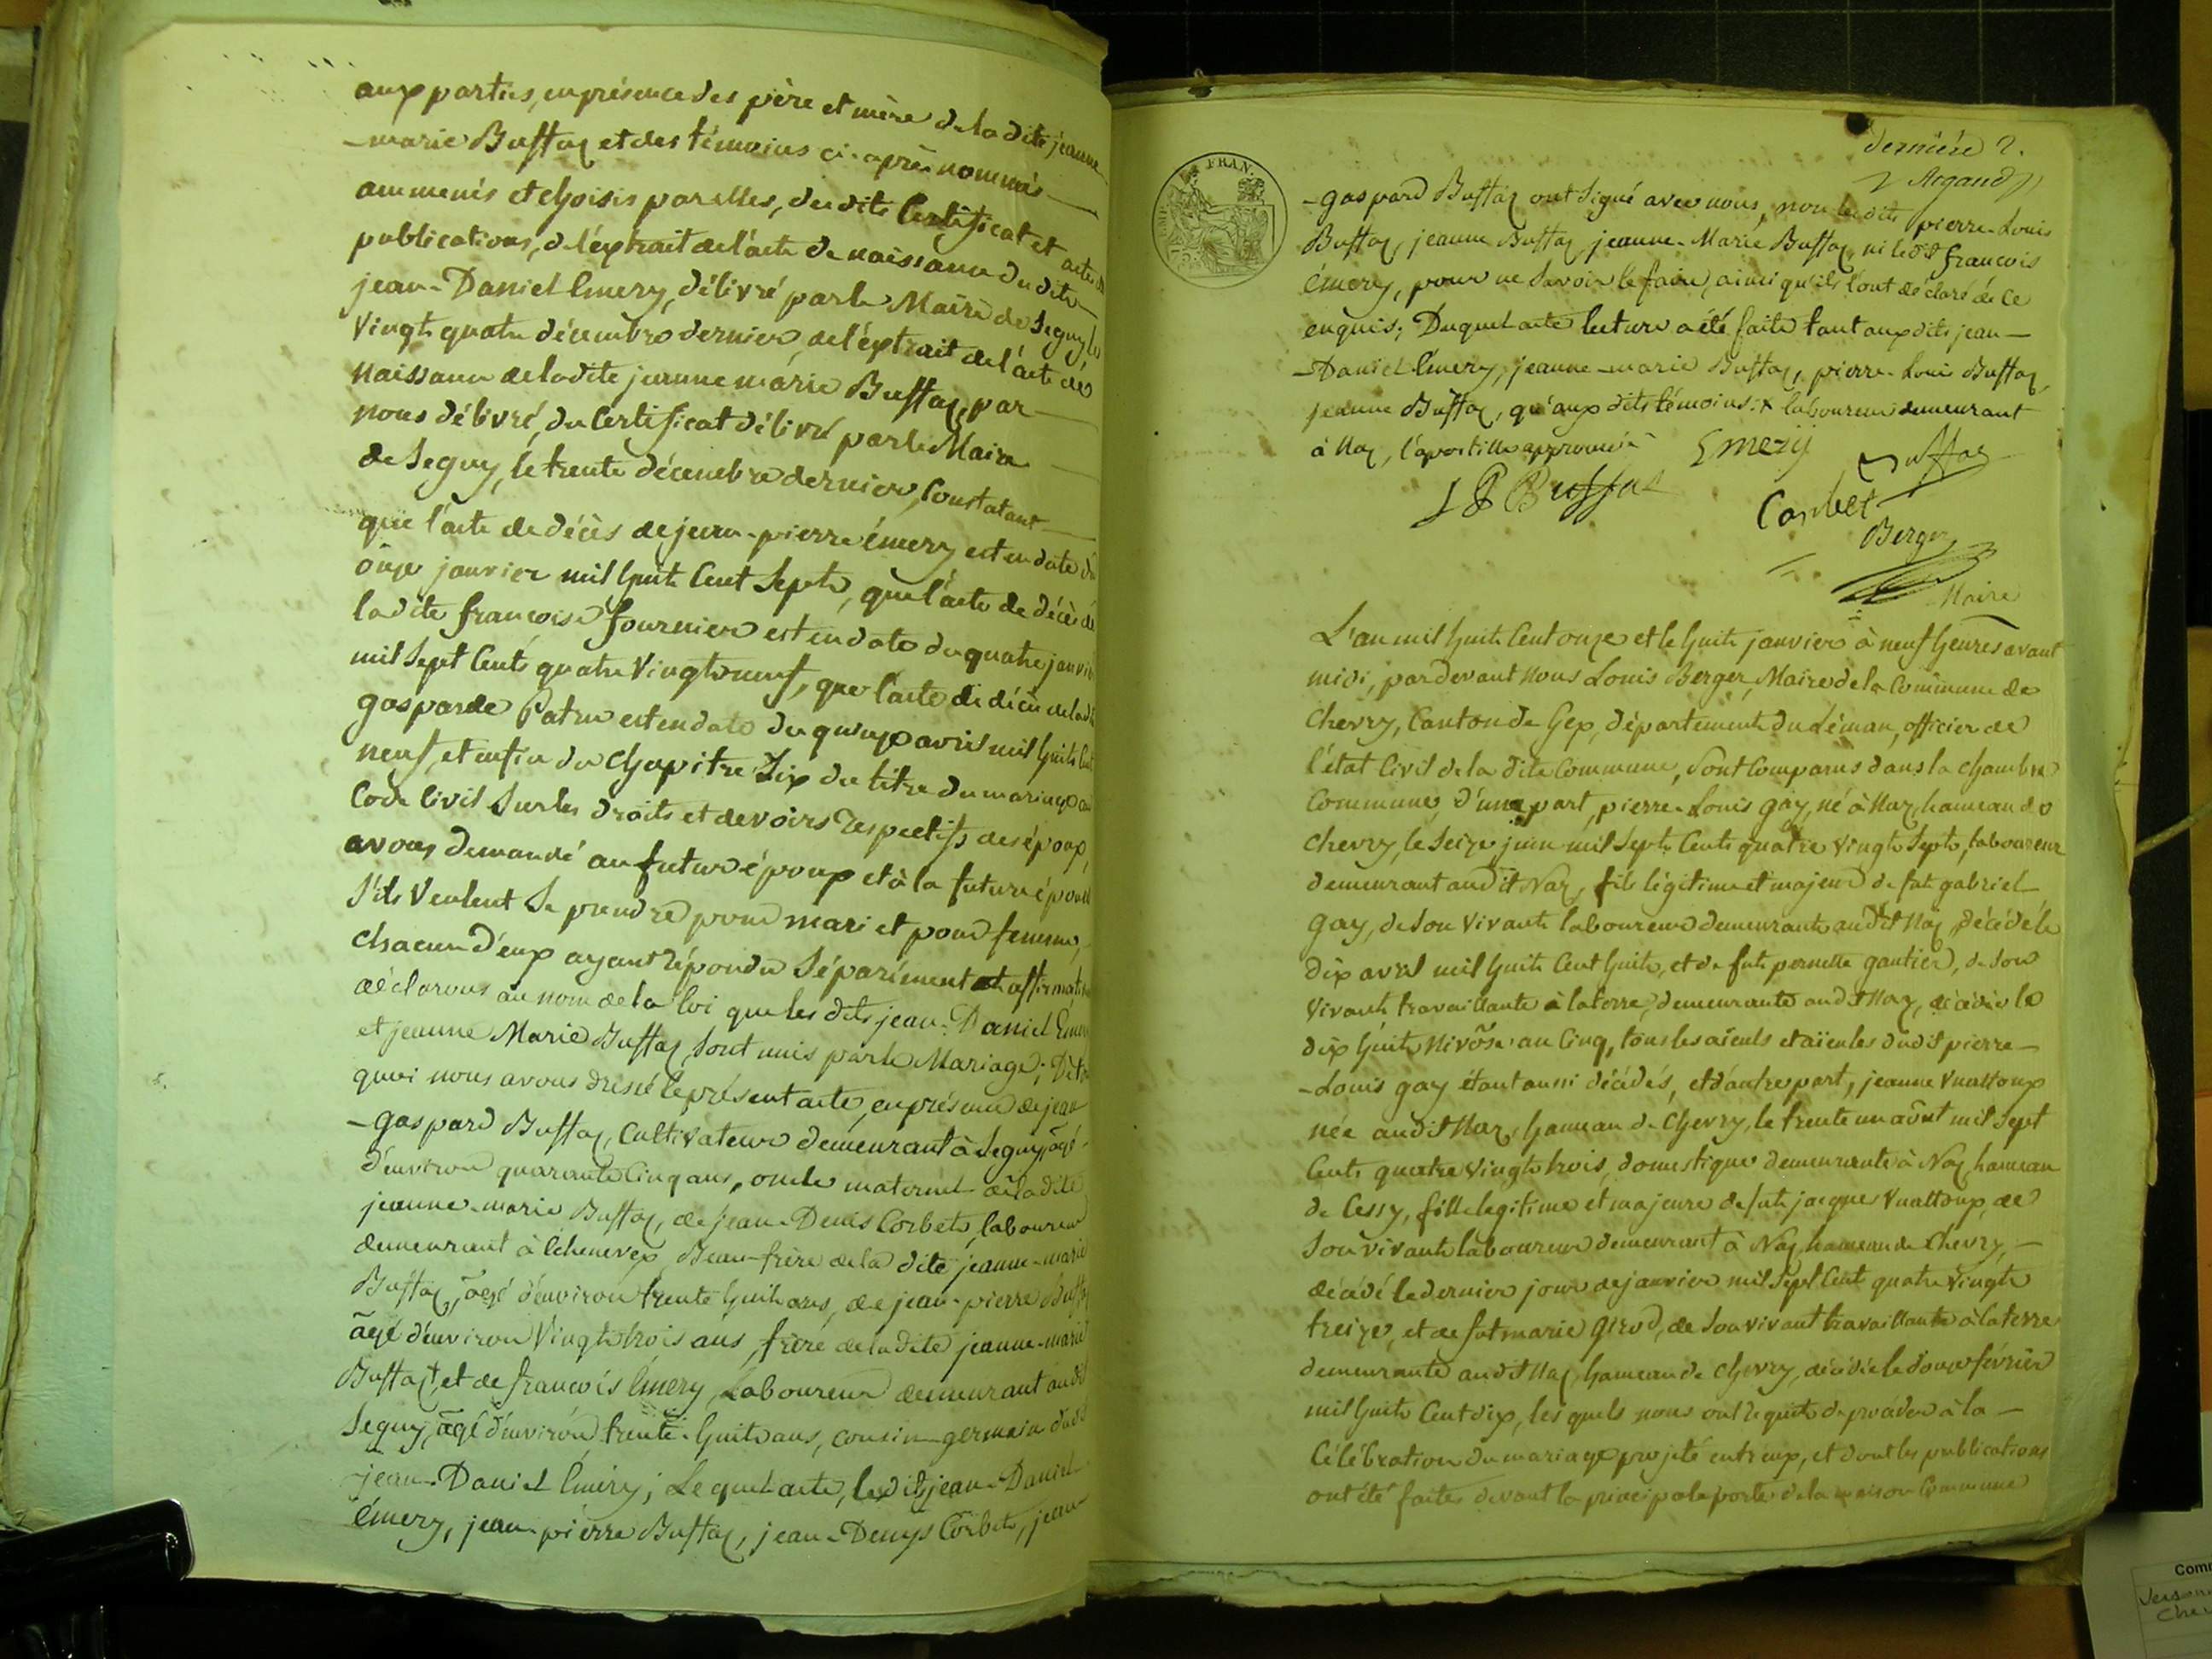 aux parties, en présence des père et mère de la dite jeanne
-marie Buffaz et des témoins ci-après nommés
ammenés et choisis par elles, du dit Certificat et acte de
publications, de l'extrait de l'acte de naissance du dit
jean-Daniel Emery, délivré par le Maire de Segny, le
vingt quatre décembre dernier, de l'extrait de l'acte de
naissance de la dite jeanne marie Buffaz, par
nous délivré, du Certificat délivré par le Maire
de Segny, le trente décembre dernier, Constatant
que l'acte de décès de jean-pierre émery est en date du
onze janvier mil huit Cent Sept, que l'acte de décès de
la dite françoise fournier est en date du quatre janvier
mil Sept Cents quatre Vingt neuf, que l'acte de décès de la dite
gasparde Patru est en date du quinze avril mil huit Cent
neuf, et enfin du Chapitre Six du titre du mariage du
Code Civil Sur les droits et devoirs respectifs des époux,
avons demandé au futur époux et à la future épouse
S'ils Veulent Se prendre pour mari et pour femme,
chacun d'eux ayant répondu Séparément et affirmativement
déclarons au nom de la loi que les dits jean-Daniel Emery
et jeanne Marie Buffaz Sont unis par le Mariage; De
quoi nous avons dressé le présent acte, en présence de jean
-gaspard Buffaz, Cultivateur demeurant à Segny, âgé
d'environ quarante Cinq ans, oncle maternel de la dite
jeanne-marie Buffaz, de jean-Denis Corbet, laboureur
demeurant à Echenevex, Beau-frère de la dite jeanne-marie
Buffaz, âgé d'environ trente huit ans, de jean-pierre Buffaz
âgé d'environ Vingt trois ans, frère de la dite jeanne-marie
Buffaz +, et de françois Emery, Laboureur demeurant au dit
Segny, âgé d'environ trente-huit ans, cousin-germain du dit
jean-Daniel Emery; Lequel acte, les dits jean-Daniel
émery, jean-pierre Buffaz, jean-Denys Corbet, jean
dernière 2.
Argand
-gaspard Buffaz ont Signé avec nous, non les dits pierre-Louis
Buffaz, jeanne Buffaz, jeanne-Marie Buffaz, ni le dit françois
émery, pour ne Savoir le faire, ainsi qu'ils l'ont déclaré de Ce
enquis; Duquel acte lecture a été faite tant aux dits jean-
-Daniel Emery, jeanne-marie Buffaz, pierre-Louis Buffaz,
jeanne Buffaz, qu'aux dits témoins. + laboureur demeurant
à Naz, l'apostille approuvée
Emery
Buffaz
J P Buffaz
Corbet
Berger
Maire
FRAN.
L'an mil huit Cent onze et le huit janvier à neuf heures avant
midi, pardevant Nous Louis Berger, Maire de la Commune de
Chevry, Canton de Gex, département du Léman, officier de
l'état Civil de la dite Commune, Sont Comparus dans la chambre
Commune, d'une part, pierre-Louis gay, né à Naz, hameau de
Chevry, le Seize juin mil Sept Cents quatre Vingt Sept, laboureur
demeurant au dit Naz, fils légitime et majeur de fut gabriel
gay, de Son Vivant laboureur demeurant au dit Naz, décédé le
dix avril mil huit Cent huit, et de fut pernette gautier, de Son
Vivant travaillante à la terre, demeurante au dit Naz, décédée le
dix huit Nivôse an Cinq, tous les aïeuls et aïeules du dit pierre-
-Louis gay étant aussi décédés, et d'autre part, jeanne Vuattoux
née au dit Naz, hameau de Chevry, le trente un août mil Sept
Cents quatre Vingt trois, domestique demeurante à Naz, hameau
de Cessy, fille legitime et majeure de fut jacques Vuattoux, de
Son vivant laboureur demeurant à Naz, hameau de Chevry,
décédé le dernier jour de janvier mil Sept Cent quatre Vingt
treize, et de fut marie girod, de Son vivant travaillante à la terre
demeurante au dit Naz, hameau de Chevry, décédée le douze février
mil huit Cent dix, lesquels nous ont requis de procéder à la
Célébration du mariage projeté entr'eux, et dont les publications
ont été faites devant la principale porte de la maison Commune
Com
Cher